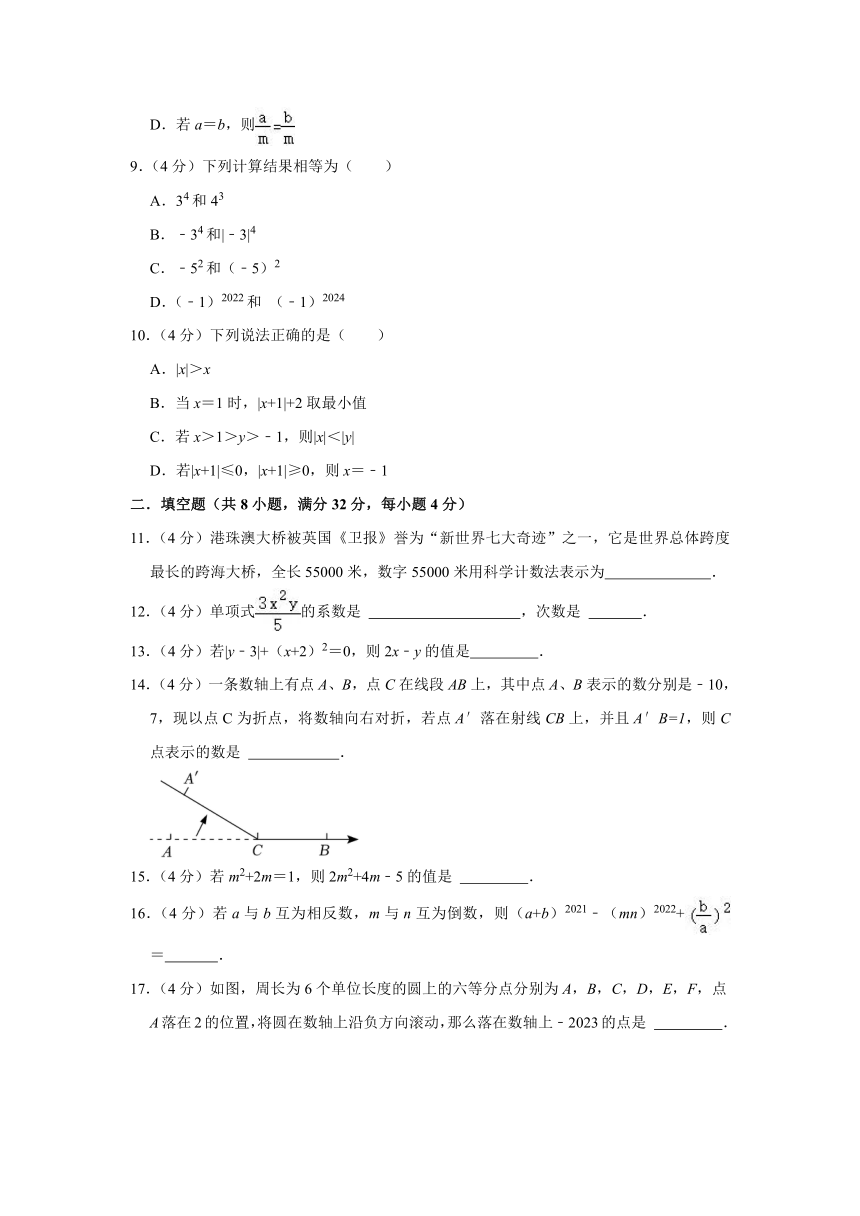 D．若 a＝b，则a/m=b/m
9.（4 分）下列计算结果相等为（　　）
A．3⁴和 4³
B．﹣3⁴和|﹣3|⁴
C．﹣5²和（﹣5）²
D．（﹣1）²⁰²²和 （﹣1）²⁰²⁴
10.（4 分）下列说法正确的是（　　）
A．|x|＞x
B．当 x＝1 时，|x+1|+2 取最小值
C．若 x＞1＞y＞﹣1，则|x|＜|y|
D．若|x+1|≤0，|x+1|≥0，则 x＝﹣1
二．填空题（共 8 小题，满分 32 分，每小题 4 分）
11.（4 分）港珠澳大桥被英国《卫报》誉为“新世界七大奇迹”之一，它是世界总体跨度
最长的跨海大桥，全长 55000 米，数字 55000 米用科学计数法表示为＿＿＿＿＿＿＿．
12.（4 分）单项式3x²y/5的系数是 ＿＿＿＿＿＿＿＿＿＿，次数是 ＿＿＿＿．
13.（4 分）若|y﹣3|+（x+2）²＝0，则 2x﹣y 的值是＿＿＿＿＿．
14.（4 分）一条数轴上有点 A、B，点 C 在线段 AB 上，其中点 A、B 表示的数分别是﹣10，
7，现以点 C 为折点，将数轴向右对折，若点 A′ 落在射线 CB 上，并且 A′ B=1，则 C
点表示的数是 ＿＿＿＿＿＿．
A′
A C B
15.（4 分）若 m²+2m＝1，则 2m²+4m﹣5 的值是 ＿＿＿＿＿．
16.（4 分）若 a 与 b 互为相反数，m 与 n 互为倒数，则（a+b）²⁰²¹﹣（mn）²⁰²²+(b/a)²
＝＿＿＿＿．
17.（4 分）如图，周长为 6 个单位长度的圆上的六等分点分别为 A，B，C，D，E，F，点
A 落在 2 的位置，将圆在数轴上沿负方向滚动，那么落在数轴上﹣2023 的点是 ＿＿＿＿＿．